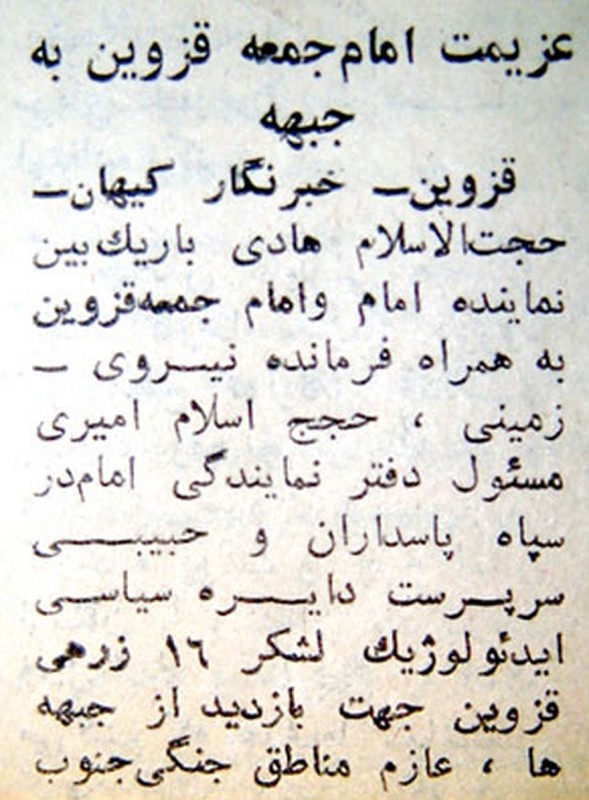 عزیمت امام‌جمعه قزوین به
جبهه
قزوین_ خبرنگار کیهان_
حجت‌الاسلام هادی باریك‌بین
نماینده امام وامام جمعه‌قزوین
به همراه فرمانده نیـروی _
زمینی ، حجج اسلام امیری
مسئول دفتر نمایندگی امام‌در
سپاه پاسداران و حبیبـــی
سرپـرست دایـــره سیاسـی
ایدئولوژیك لشکر ١٦ زرهی
قزوین جهت بازدید از جبهه
ها ، عازم مناطق جنگی‌جنوب